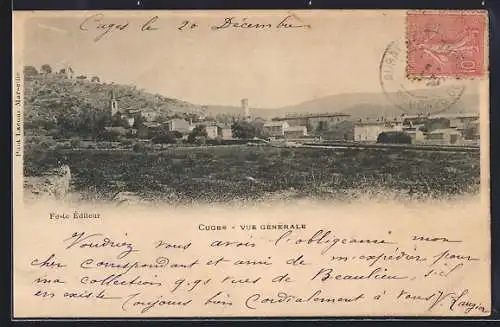 Cuges le 20 Décembre
10
Phot Lacour Marseille
Foste Éditeur
CUGES - VUE GÉNÉRALE
Voudriez vous avoir l'obligeance mon
cher correspondant et ami de m'expédier pour
ma collection q.qs vues de Beaulieu, s'il
en existe Toujours bien Cordialement à vous